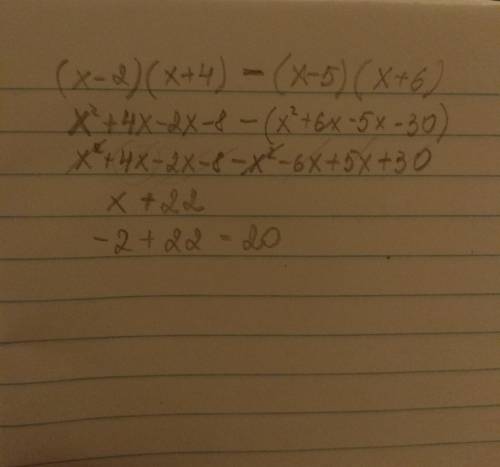 (x-2)(x+4) - (x-5)(x+6)
x²+4x-2x-8-(x²+6x-5x-30)
x²+4x-2x-8-x²-6x+5x+30
x+22
-2+22=20